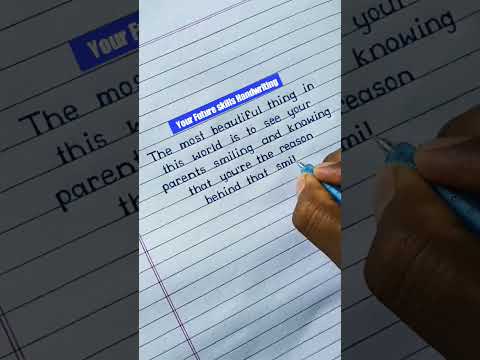 Your Future skills Handwriting
The most beautiful thing in
this world is to see your
parents smiling and knowing
that you're the reason
behind that smil